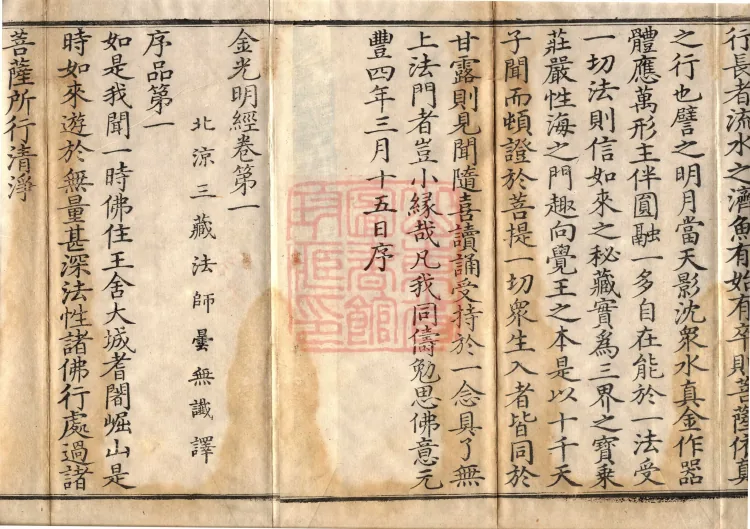 行長者流水之濟魚有始有卒則菩薩依真
之行也譬之明月當天影沈衆水真金作器
體應萬形主伴圓融一多自在能於一法受
一切法則信如來之秘藏實為三界之寶乗
莊嚴性海之門趣向覺王之本是以十千天
子聞而頓證於菩提一切衆生入者皆同於
甘露則見聞隨喜讀誦受持於一念具了無
上法門者豈小縁哉凡我同儔勉思佛意元
豐四年三月十五日序
金光明經卷第一
北涼三藏法師曇無讖譯
序品第一
如是我聞一時佛住王舍大城耆闍崛山是
時如來遊於無量甚深法性諸佛行處過諸
菩薩所行清淨